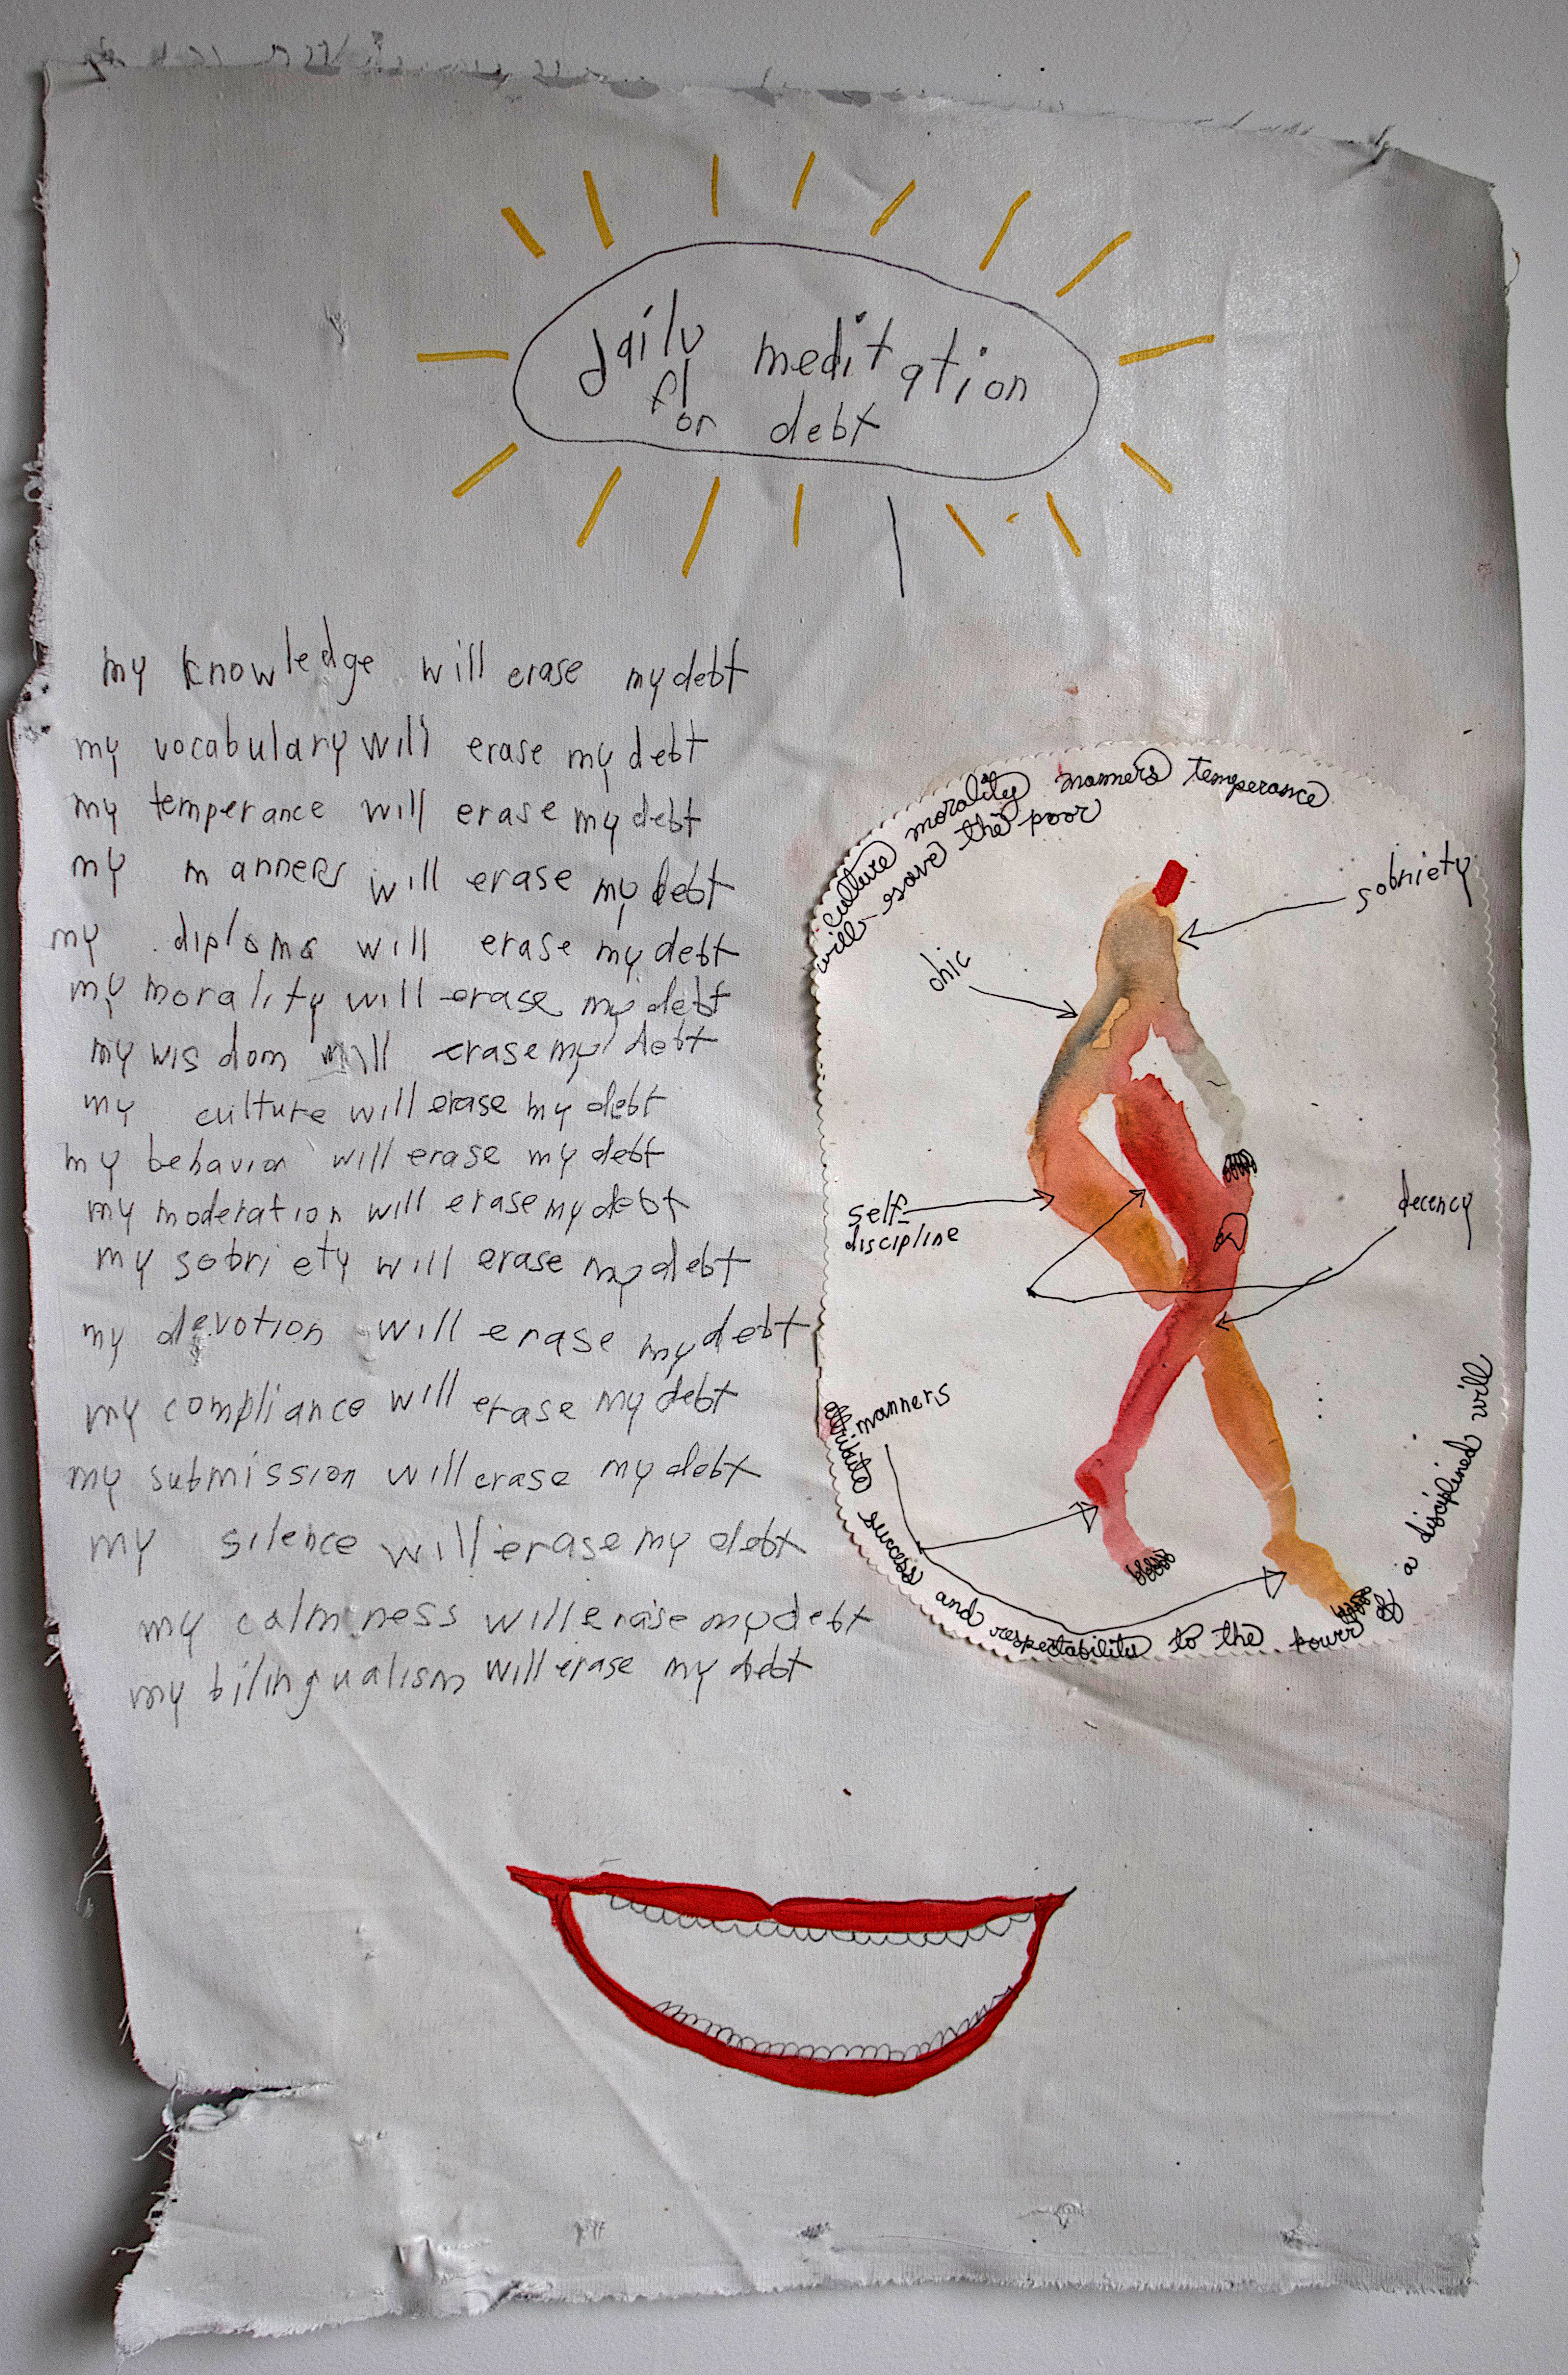 daily meditation
for debt
my knowledge will erase my debt
my vocabulary will erase my debt
my temperance will erase my debt
my manners will erase my debt
my diploma will erase my debt
my morality will erase my debt
my wisdom will erase my debt
my culture will erase my debt
my behavior will erase my debt
my moderation will erase my debt
my sobriety will erase my debt
my devotion will erase my debt
my compliance will erase my debt
my submission will erase my debt
my silence will erase my debt
my calmness will eraise my debt
my bilingualism will erase my debt
culture morality manners temperance
will save the poor
sobriety
chic
self-
discipline
decency
manners
attribute success and respectability to the power of a disciplined will